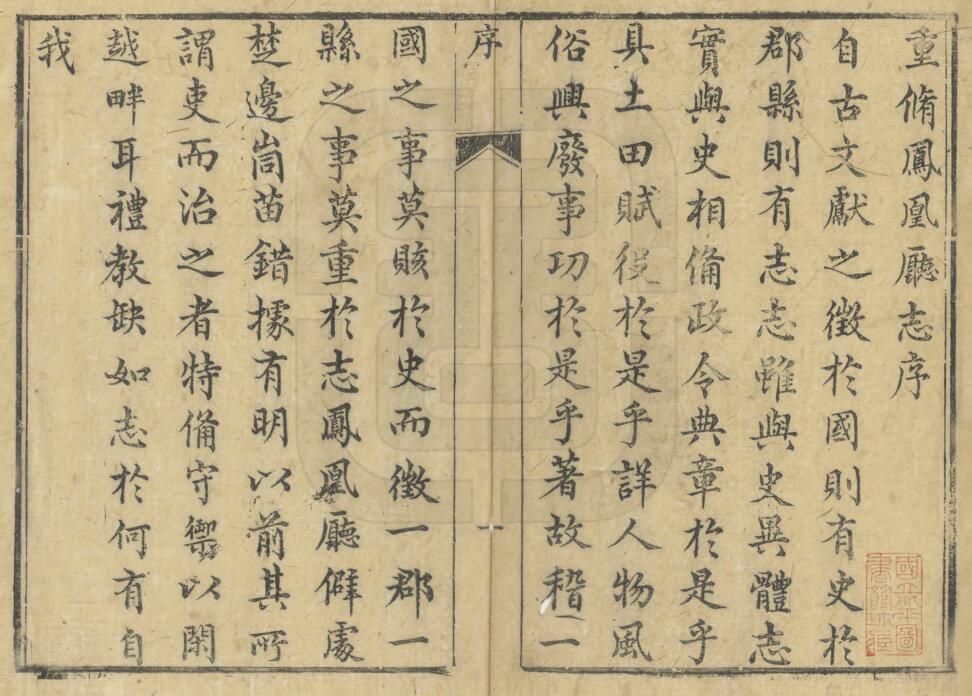 重脩鳳凰廳志序
自古文獻之徵於國則有史於
郡縣則有志志雖與史異體志
實與史相備政令典章於是乎
具土田賦役於是乎詳人物風
俗興廢事功於是乎著故稽一
序
國之事莫賅於史而徵一郡一
縣之事莫重於志鳳凰廳僻處
楚邊崗苗錯據有明以前其所
謂吏而治之者特備守禦以閑
越畔耳禮教缺如志於何有自
我